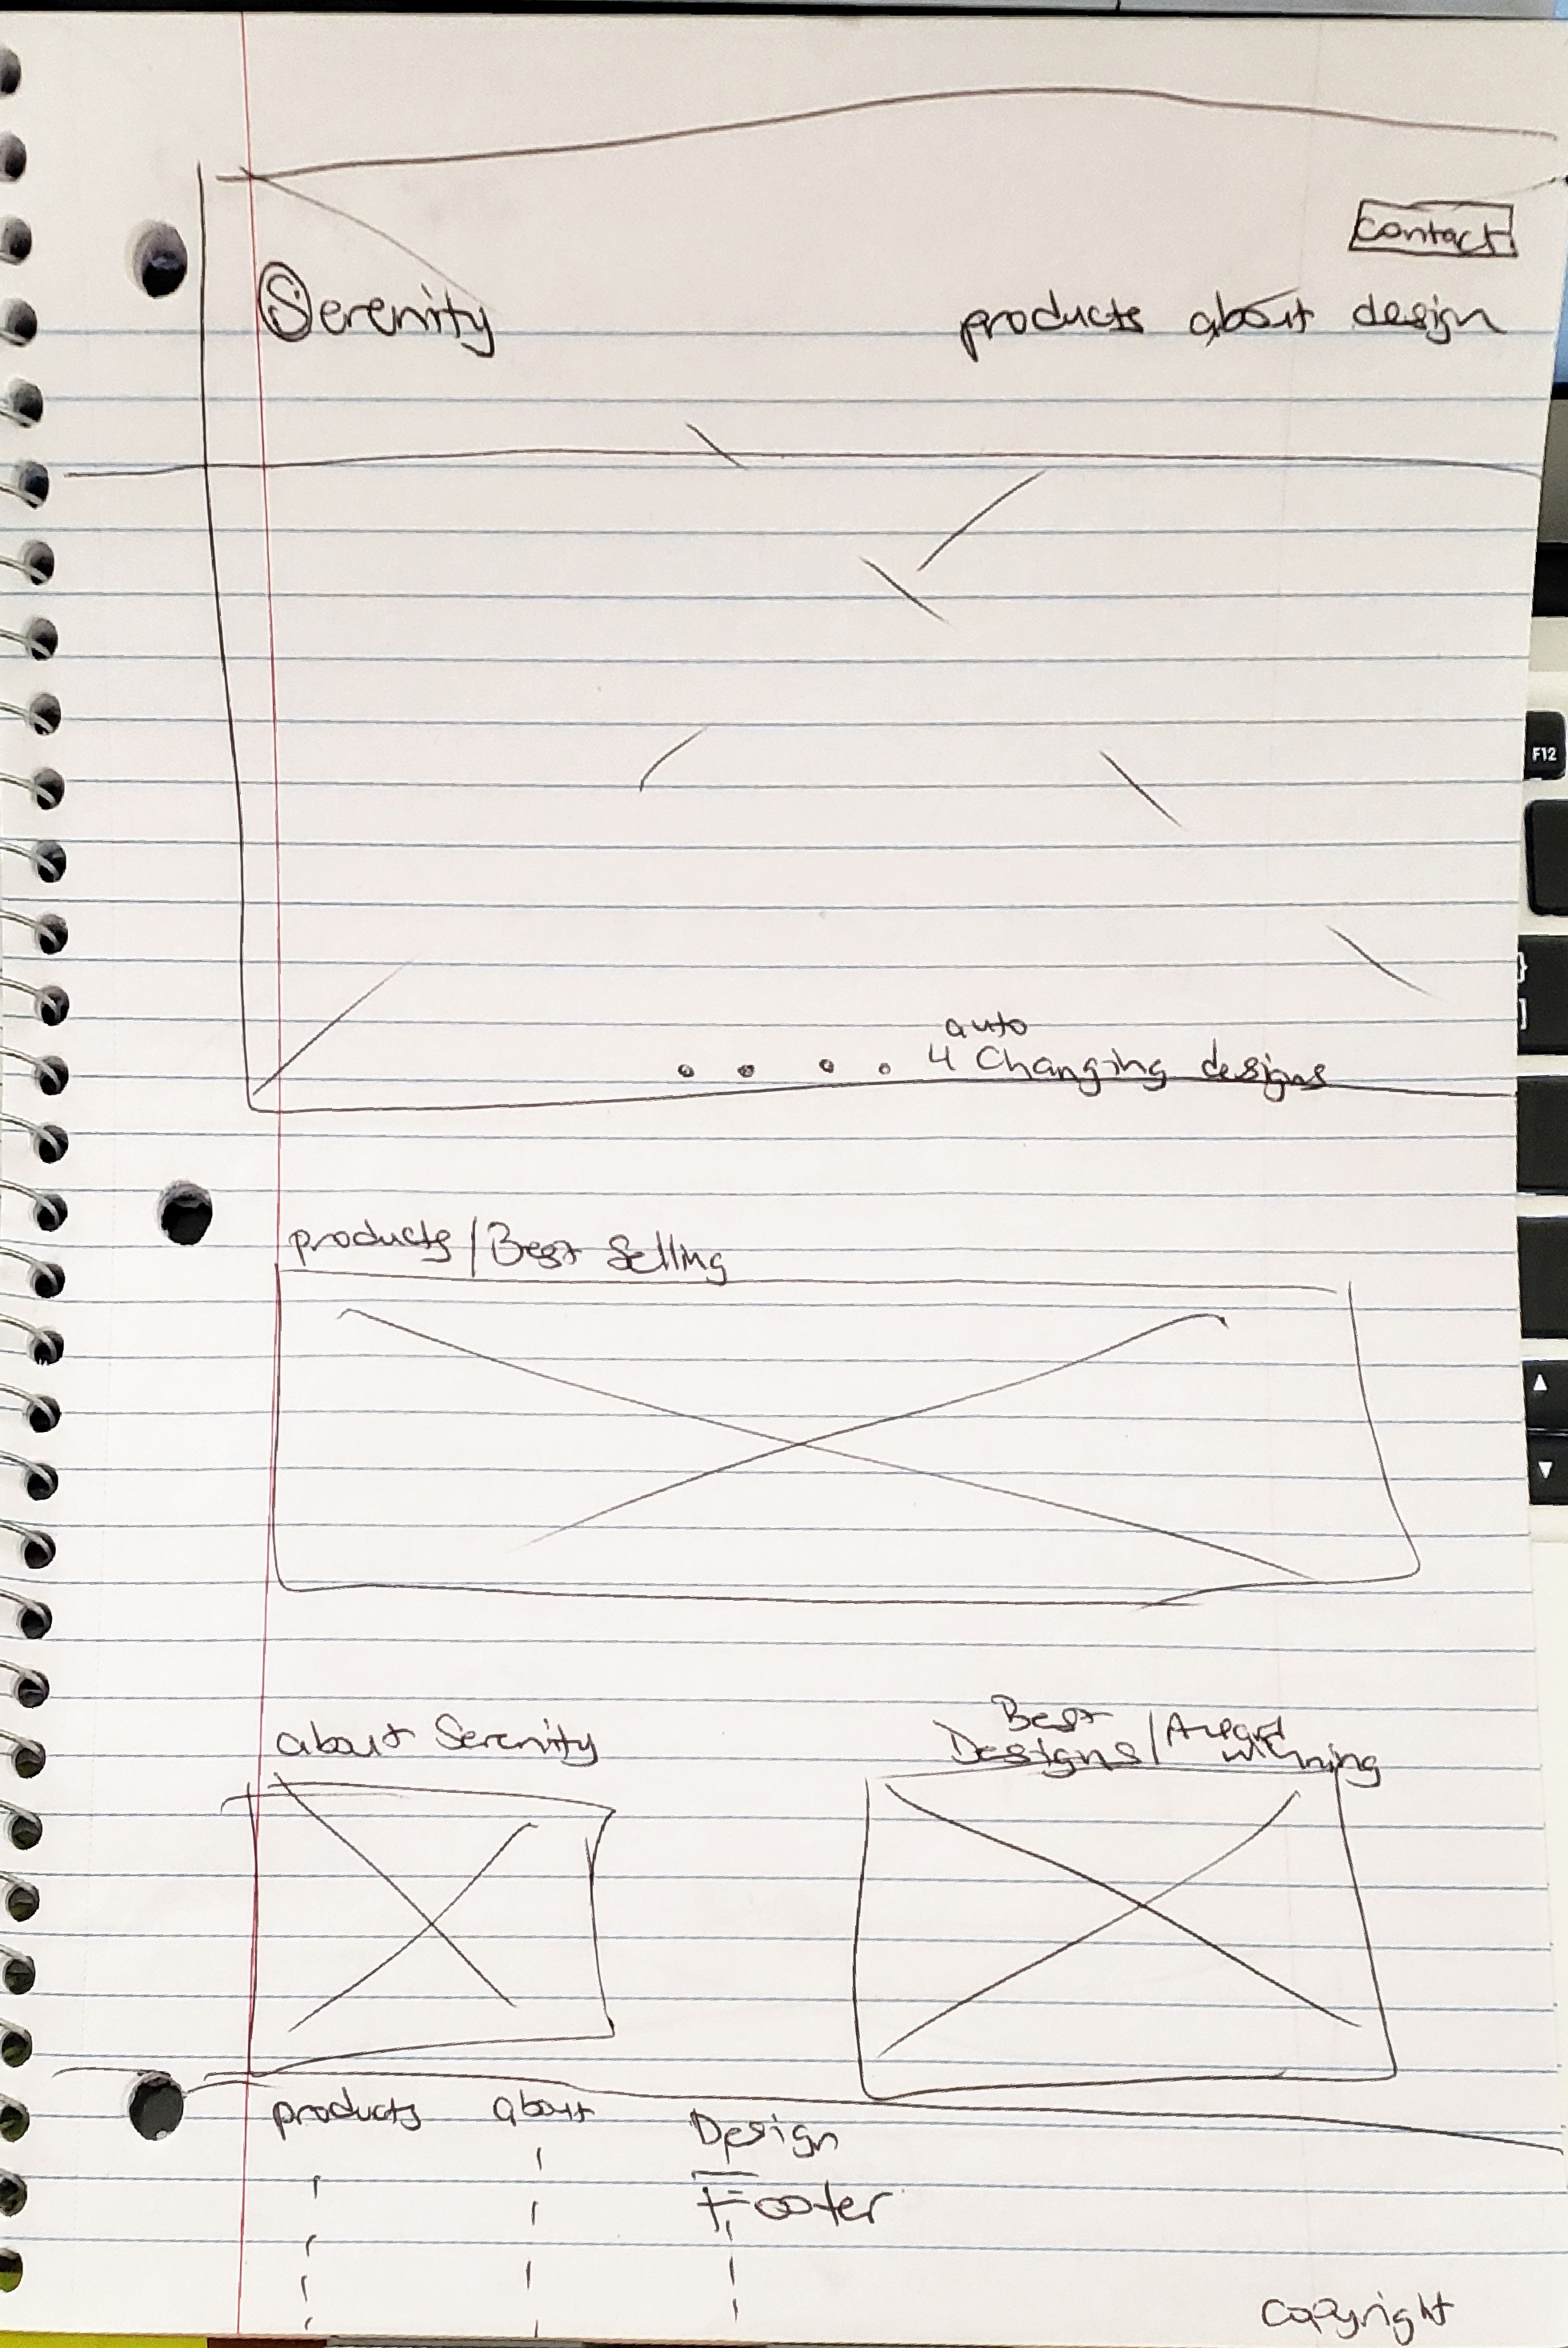 contact
Serenity
products about design
auto
4 Changing designs
products/Best Selling
about Serenity
Best
Designs/Award
winning
products about Design
Footer
copyright
F12